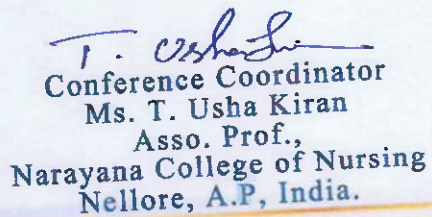 T. Usha Kiran
Conference Coordinator
Ms. T. Usha Kiran
Asso. Prof.,
Narayana College of Nursing
Nellore, A.P, India.